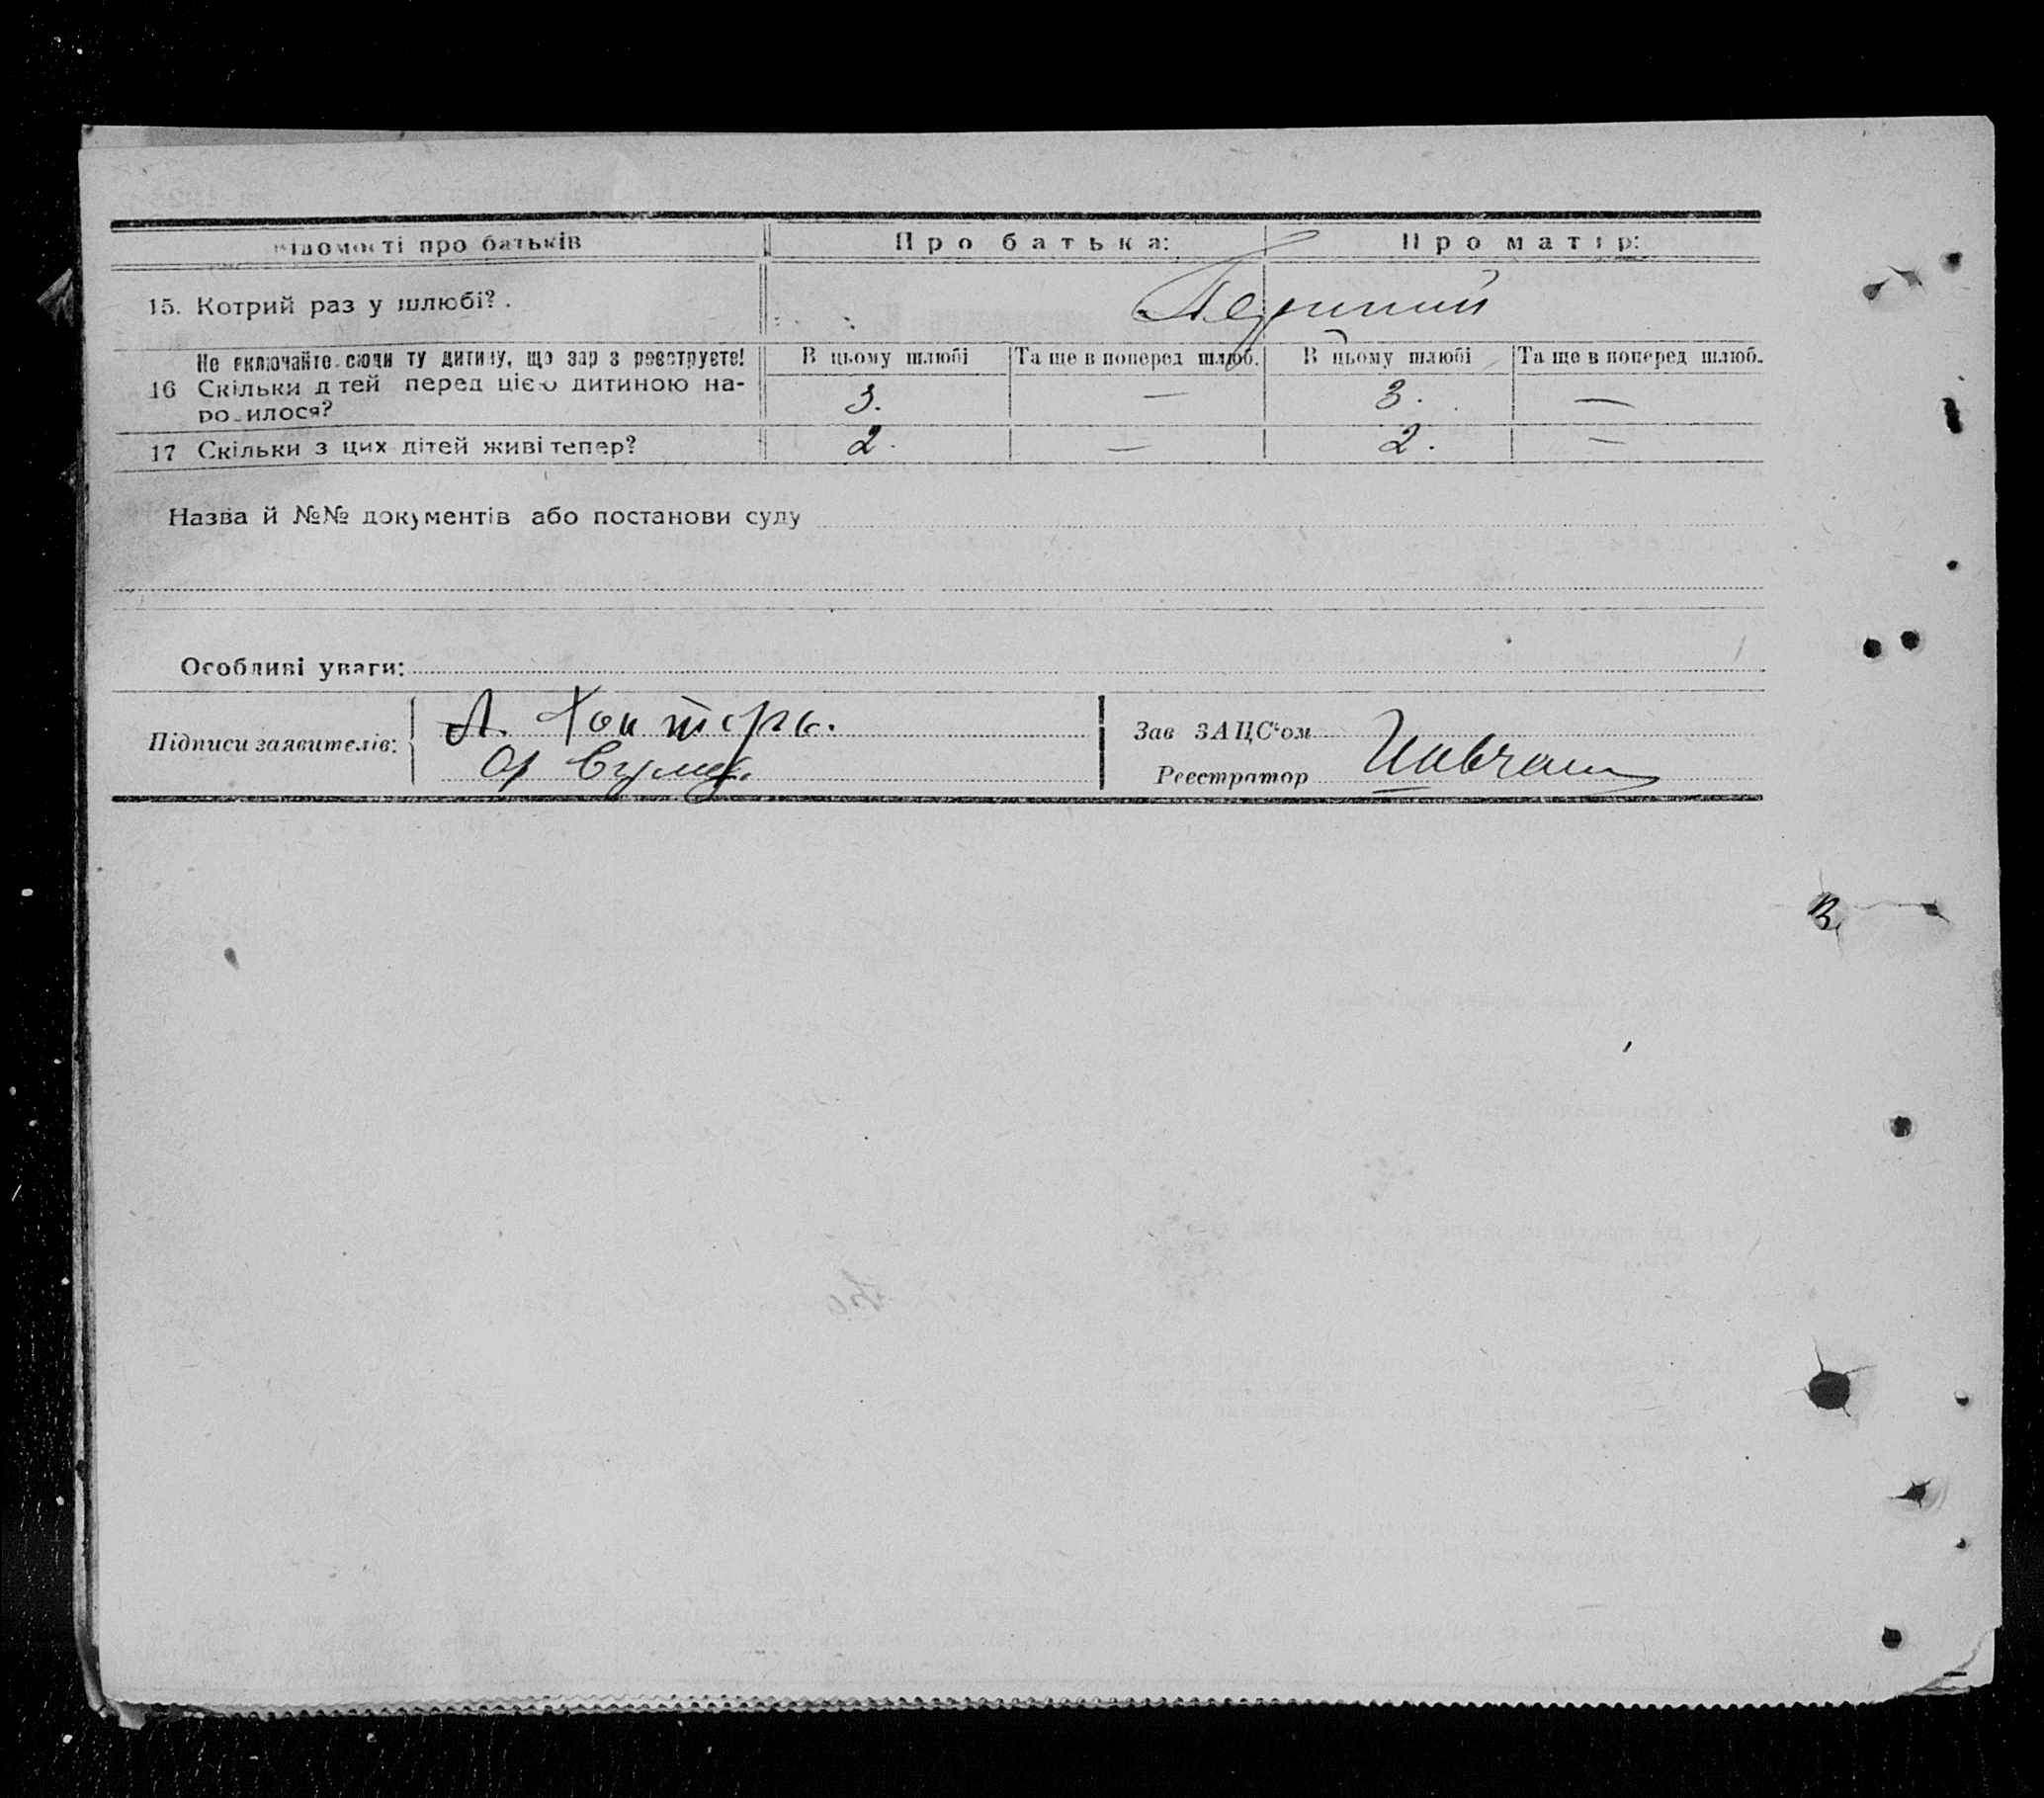 Відомості про батьків Про батька: Про матір:
15. Котрий раз у шлюбі? . Перший
Не включайте сюди ту дитину, що зар з реєструєте! В цьому шлюбі Та ще в поперед шлюб. В цьому шлюбі Та ще в поперед шлюб.
16 Скільки д тей перед цією дитиною на-
ро-илося? 3. — 3. —
17 Скільки з цих дітей живі тепер? 2. — 2. —
Назва й №№ документів або постанови суду
Особливі уваги:
Підписи заявителів:
А.
Зав ЗАЦС'ом
Реєстратор